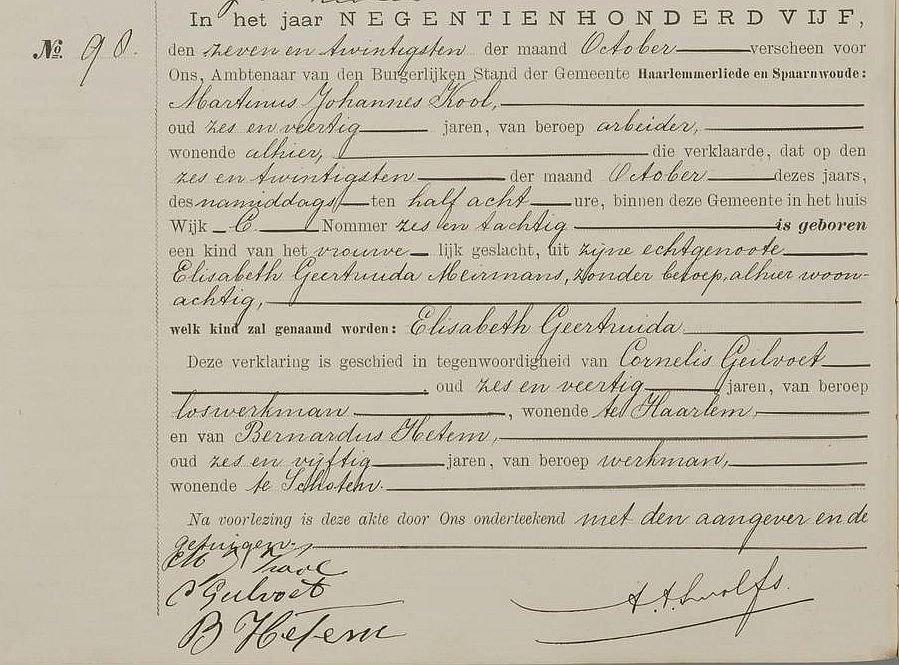 In het jaar NEGENTIENHONDERD VIJF,
No. 98.
den zeven en twintigsten der maand October verscheen voor
Ons, Ambtenaar van den Burgerlijken Stand der Gemeente Haarlemmerliede en Spaarnwoude:
Martinus Johannes Kool,
oud zes en veertig jaren, van beroep arbeider,
wonende alhier, die verklaarde, dat op den
zes en twintigsten der maand October dezes jaars,
des namiddags ten half acht ure, binnen deze Gemeente in het huis
Wijk C Nommer zes en tachtig is geboren
een kind van het vrouwe lijk geslacht, uit zijne echtgenoote
Elisabeth Geertruida Meirmans, zonder beroep, alhier woon-
achtig,
welk kind zal genaamd worden: Elisabeth Geertruida
Deze verklaring is geschied in tegenwoordigheid van Cornelis Geilvoet
, oud zes en veertig jaren, van beroep
loswerkman, wonende te Haarlem,
en van Bernardus Hetem,
oud zes en vijftig jaren, van beroep werkman,
wonende te Schoten.
Na voorlezing is deze akte door Ons onderteekend met den aangever en de
getuigen.
Kool
C Geilvoet
B Hetem